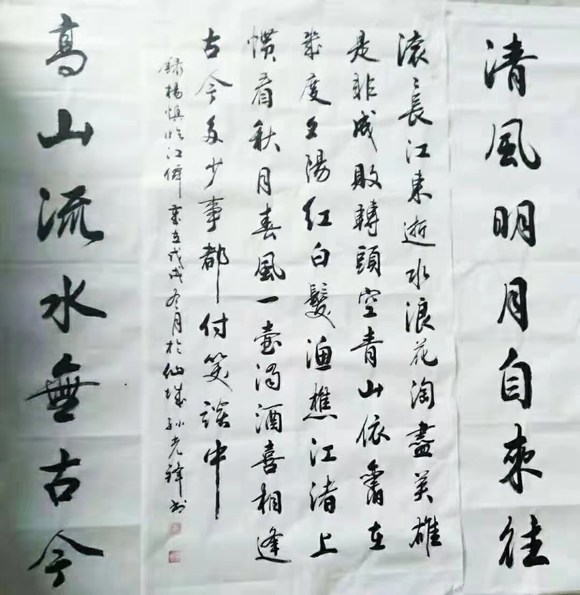 清風明月自來往
滾〻長江東逝水浪花淘盡英雄
是非成敗轉頭空青山依舊在
幾度夕陽紅白髮漁樵江渚上
慣看秋月春風一壺濁酒喜相逢
古今多少事都付笑談中
錄楊慎臨江仙 歲在戊戌冬月於仙城孫光書
高山流水無古今